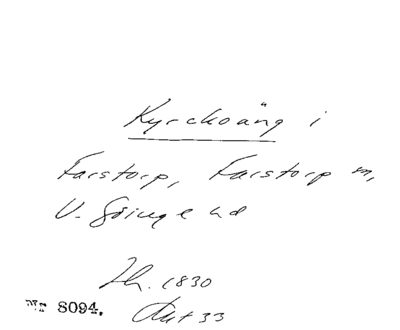 Kyrckoäng i
Farstorp, Farstorp sn,
V. Göinge hd
Ih. 1830
Nr 8094.